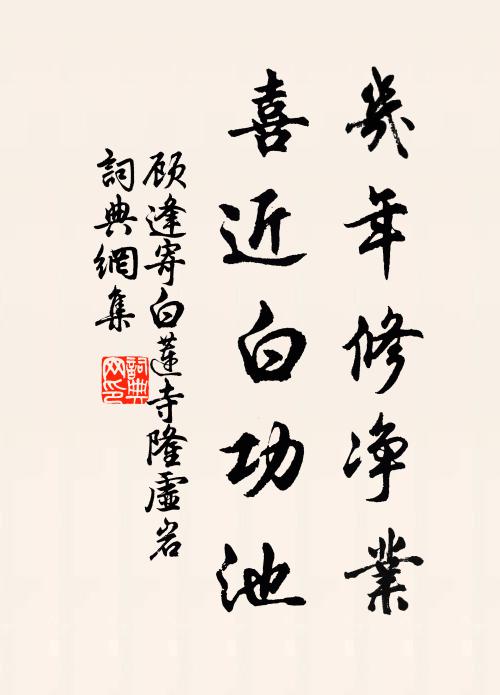 幾年修净業
喜近白功池
顾逢寄白蓮寺隆虚岩
詞典網集
詞典網印